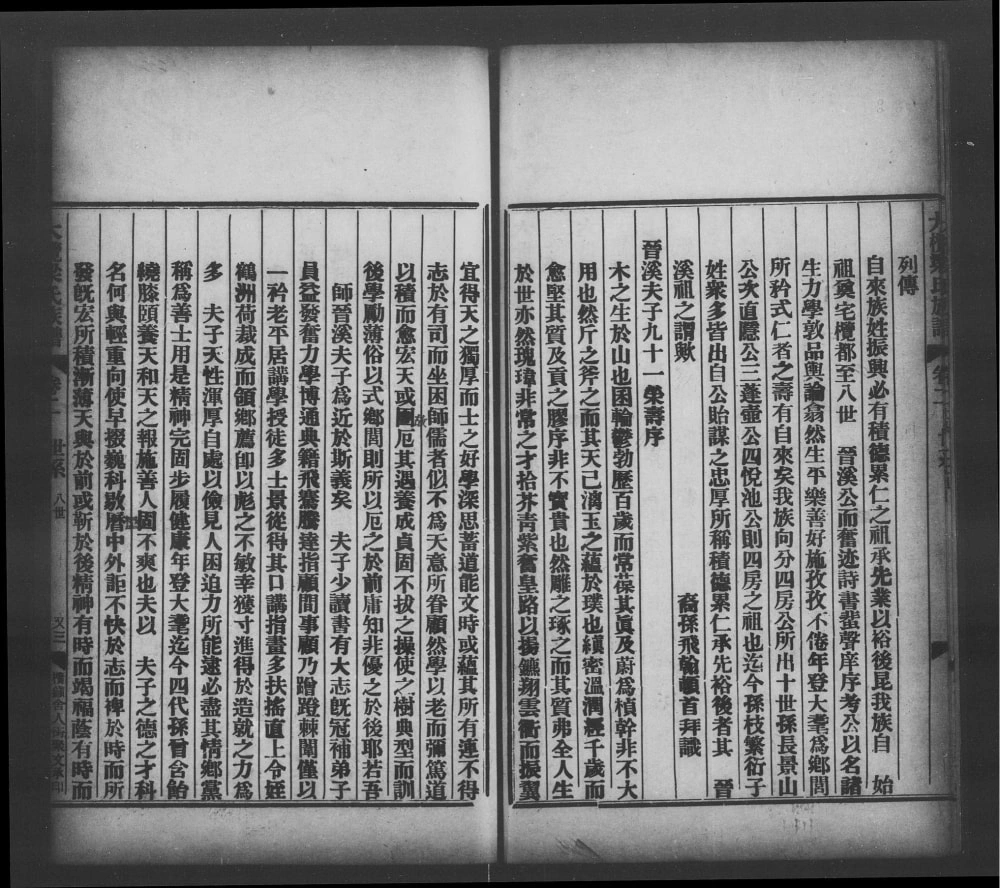 列傳
自來族姓振興必有積德累仁之祖承先業以裕後昆我族自　始
祖奠宅欖都至八世　晉溪公而奮迹詩書蜚聲庠序考公以名諸
生力學敦品輿論翕然生平樂善好施孜孜不倦年登大耋爲鄉閭
所矜式仁者之壽有自來矣我族向分四房公所出十世孫長景山
公次直隱公三蓬壺公四悅池公則四房之祖也迄今孫枝繁衍子
姓衆多皆出自公貽謀之忠厚所稱積德累仁承先裕後者其　晉
溪祖之謂歟　裔孫飛翰頓首拜識
晉溪夫子九十一榮壽序
木之生於山也困輪鬱勃歷百歲而常葆其眞及蔚爲楨幹非不大
用也然斤之斧之而其天已漓玉之蘊於璞也縝密溫潤經千歲而
愈堅其質及貢之膠序非不寶貴也然雕之琢之而其質弗全人生
於世亦然瑰瑋非常之才拾芥靑紫奮皇路以揚鑣翔雲衢而振翼
宜得天之獨厚而士之好學深思蓄道能文時或蘊其所有連不得
志於有司而坐困師儒者似不爲天意所眷顧然學以老而彌篤道
以積而愈宏天或固厄其遇養成貞固不拔之操使之樹典型而訓
後學勵薄俗以式鄉閭則所以厄之於前庸知非優之於後耶若吾
師晉溪夫子爲近於斯義矣　夫子少讀書有大志旣冠補弟子
員益發奮力學博通典籍飛騫騰達指顧間事顧乃蹭蹬棘闈僅以
一衿老平居講學授徒多士景從得其口講指畫多扶搖直上令姪
鶴洲荷裁成而領鄉薦卽以彪之不敏幸獲寸進得於造就之力爲
多　夫子天性渾厚自處以儉見人困迫力所能逮必盡其情鄉黨
稱爲善士用是精神完固步履健康年登大耋迄今四代孫曾含飴
繞膝頤養天和天之報施善人固不爽也夫以　夫子之德之才科
名何與輕重向使早掇巍科敭厯中外詎不快於志而裨於時而所
發旣宏所積漸薄天與於前或靳於後精神有時而竭福蔭有時而
卷二　世系　八世　又三